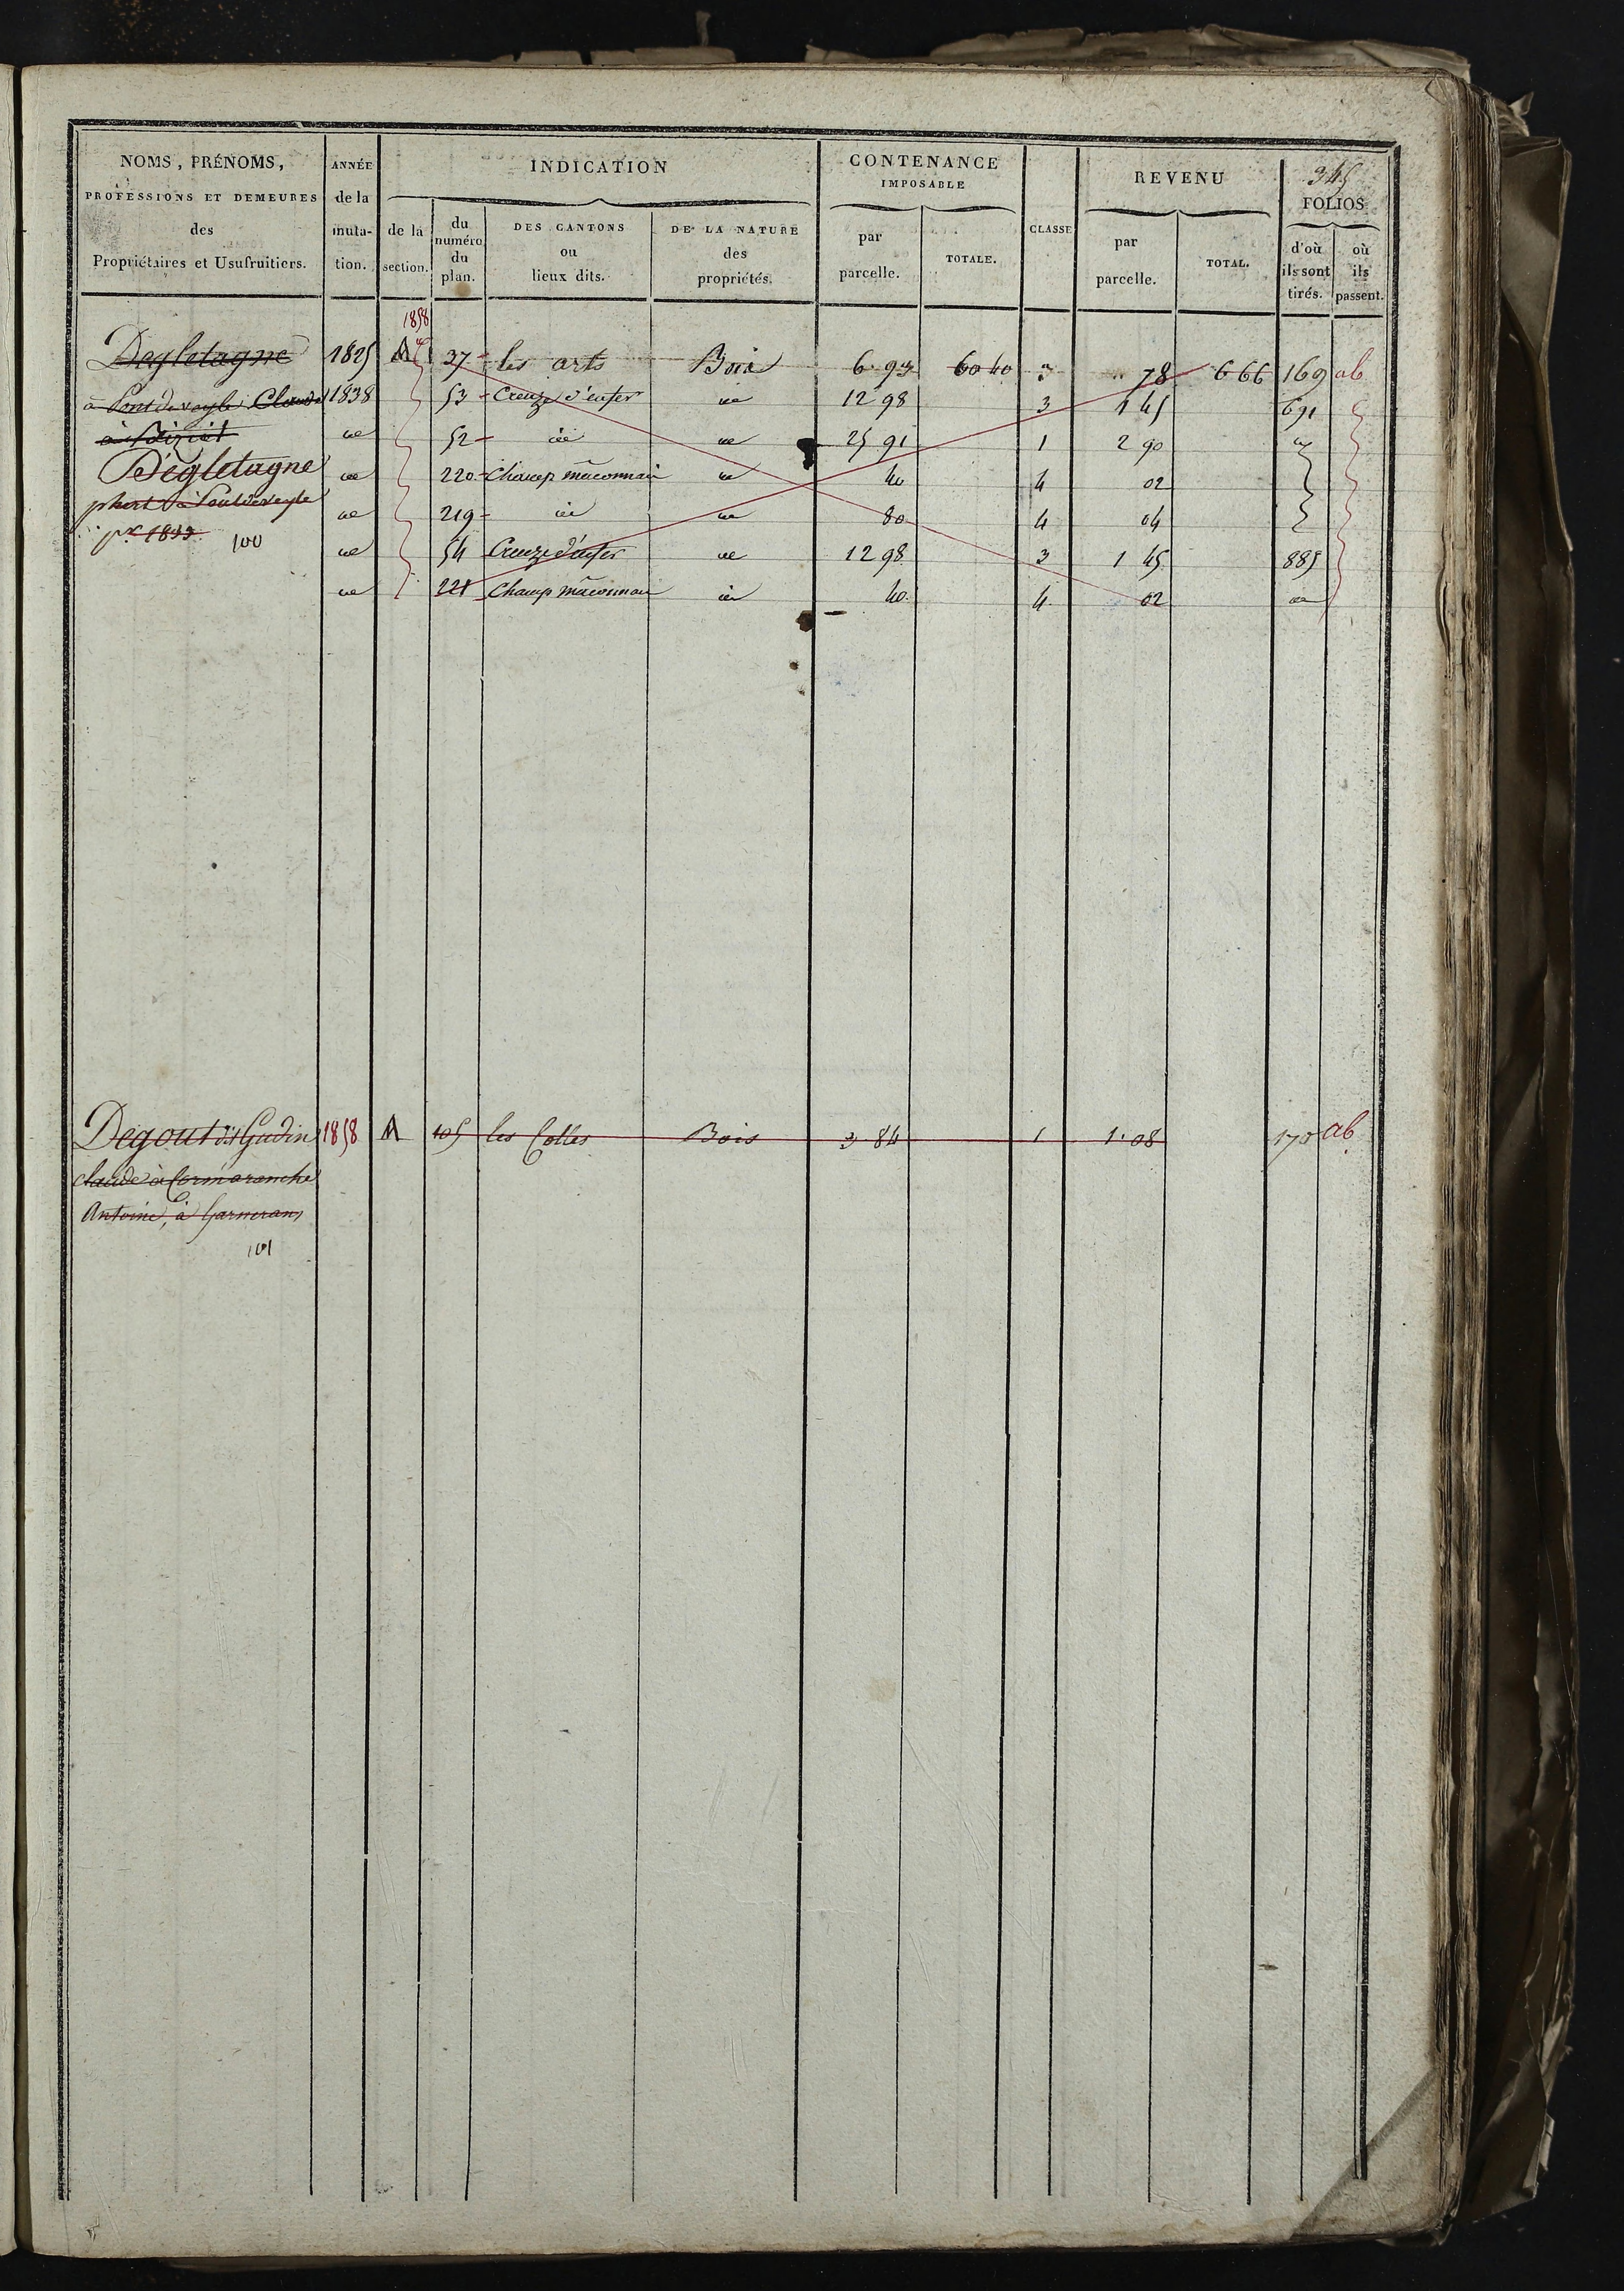 345
NOMS, PRÉNOMS, PROFESSIONS ET DEMEURES des Propriétaires et Usufruitiers.
ANNÉE de la muta- tion.
INDICATION
de la section.
du numéro du plan.
DES CANTONS ou lieux dits.
DE LA NATURE des propriétés.
CONTENANCE IMPOSABLE
par parcelle.
TOTALE.
CLASSE
REVENU
par parcelle.
TOTAL.
FOLIOS
d'où ils sont tirés.
où ils passent.
1858
Degletagne 1825 M 37 les arts Bois 6 93 60 40 3 78 6 66 169 ab
à Pontdeveyle Claude 1838 53 Creuze d'enfer id 12 98 3 1 45 691
à id 52 id id 25 91 1 2 90 id
Dégletagne id 220 Champ mâconnais id 40 4 02
à Pontdeveyle id 219 id id 80 4 04
pr 1833 100 id 54 Creuze d'enfer id 12 98 3 1 45 885
id 221 Champ mâconnais id 40 4 02 id
Degout dit Gudin 1858 M 105 les Colles Bois 3 84 1 1.08 170 ab
claude à Cormoranche
Antoine, à Garnerans
101